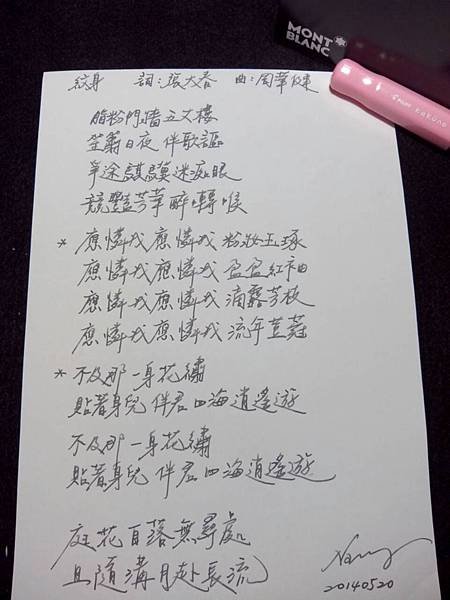 MONT
BLANC
PILOT kakuno
紋身 詞:張大春 曲:周華健
脂粉門牆五丈樓
笙簫日夜 伴歌謳
爭塗 迷 眼
競豔芳華 醉囀喉
* 應憐我 應憐我 粉妝玉琢
應憐我 應憐我 盈盈紅袖
應憐我 應憐我 滴露芳枝
應憐我 應憐我 流年荳蔻
* 不及那 一身花繡
貼著身兒 伴君四海逍遙遊
不及那 一身花繡
貼著身兒 伴君四海逍遙遊
庭花自落無尋處
且隨溝月赴長流
20140520